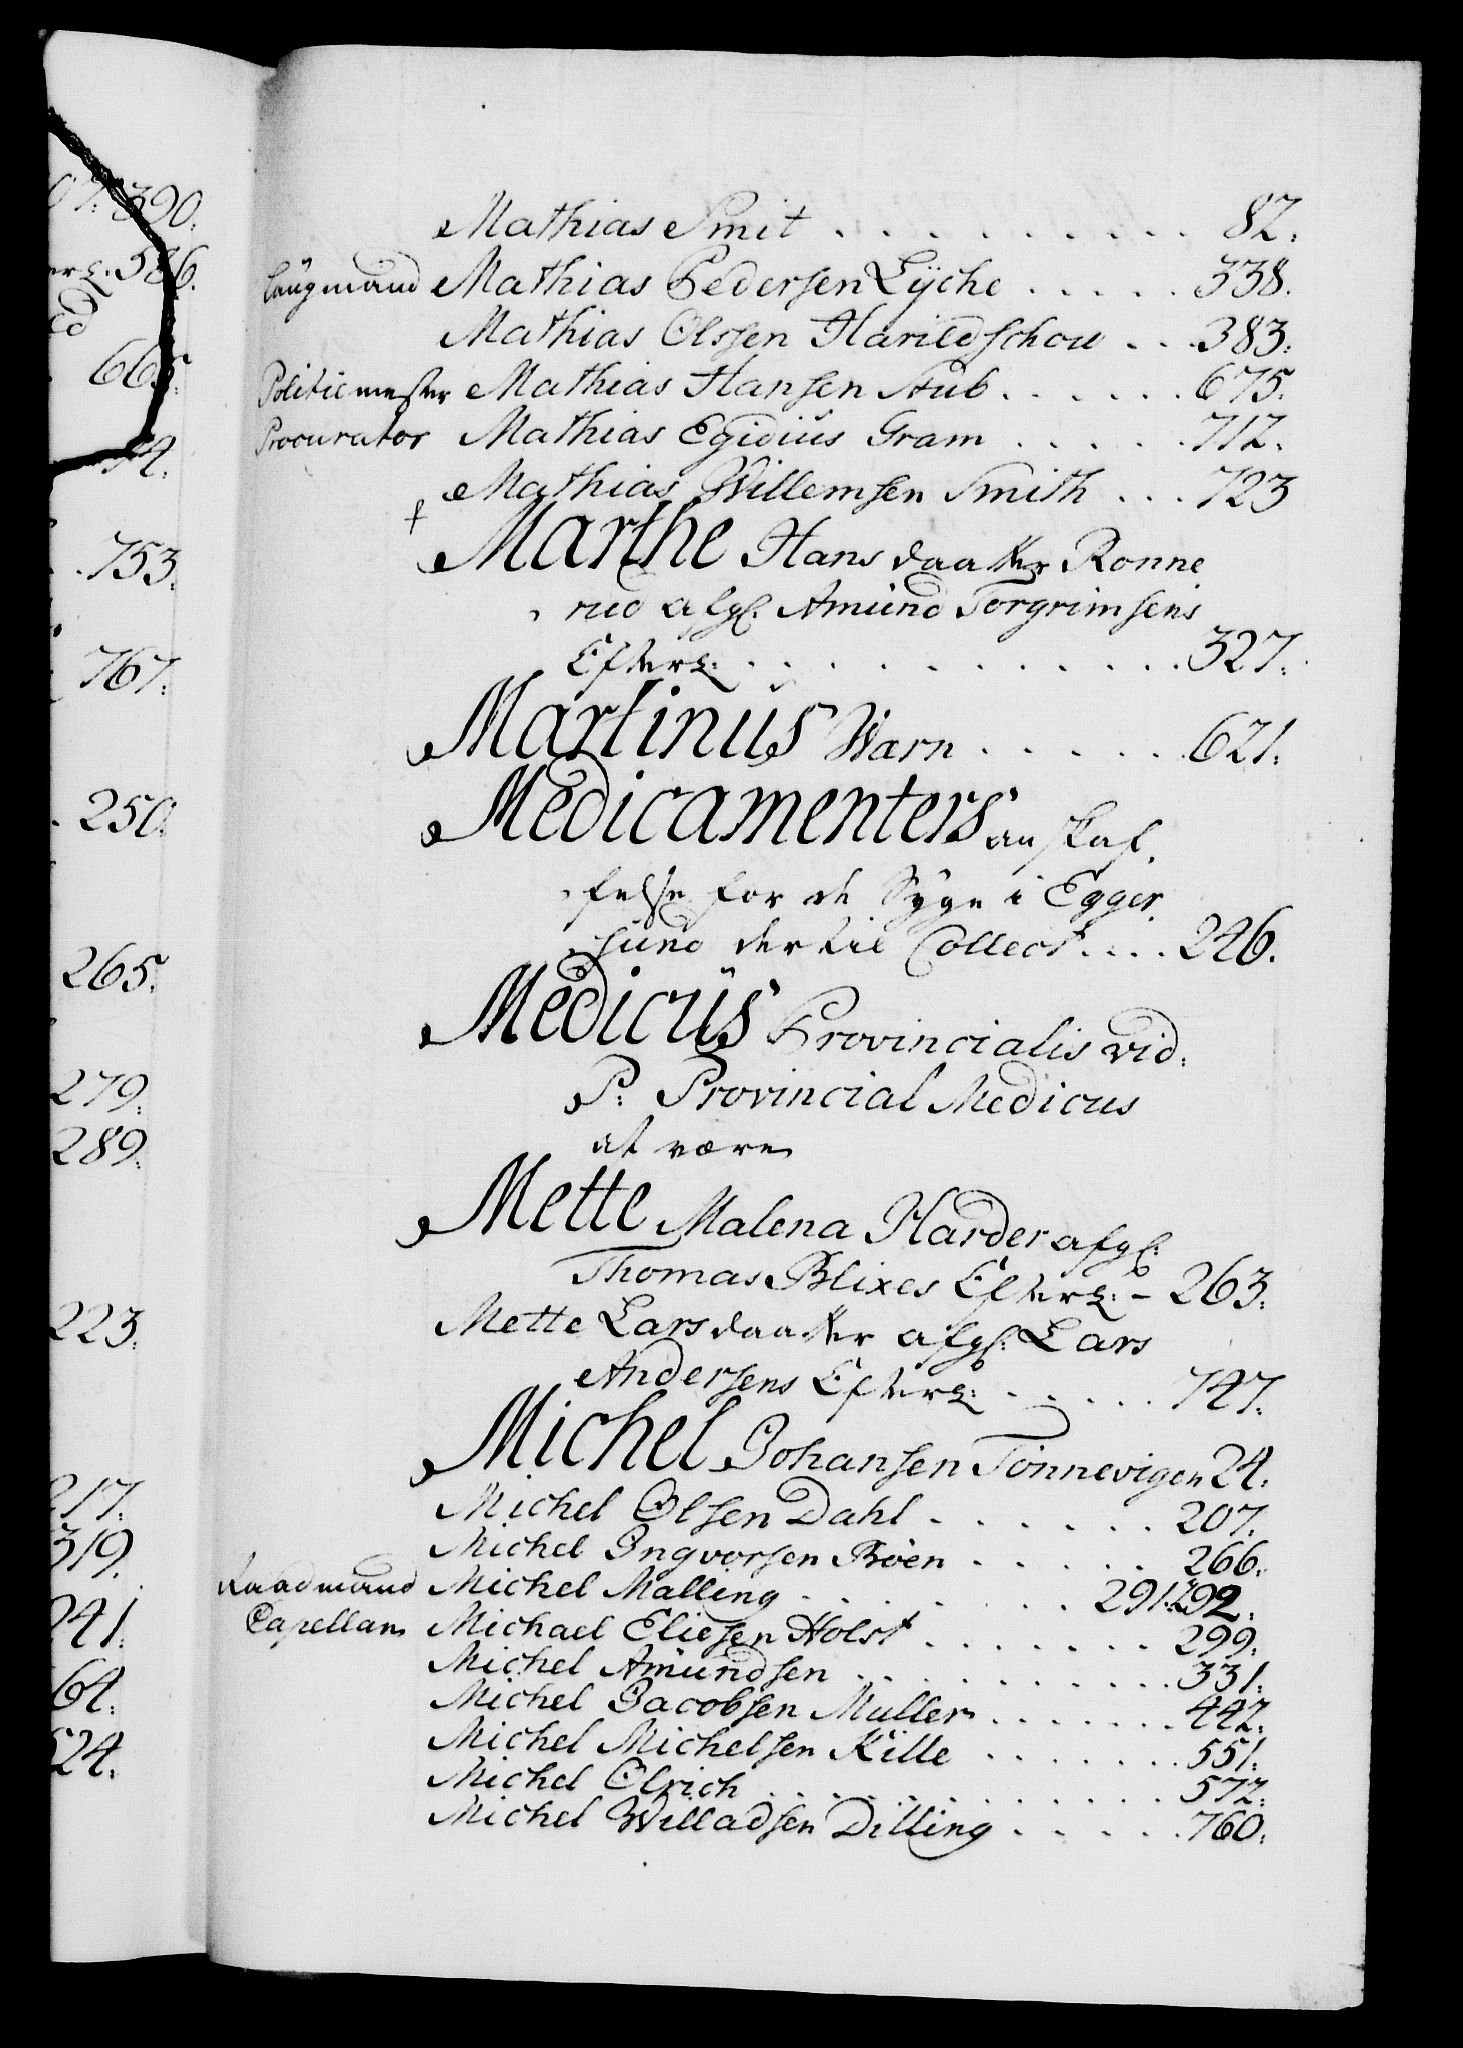 07: 390:
Mathias Smit . . . . . . . . . . 82:
erl: 586.
Laugmand Mathias Pedersen Lÿche . . . . . 338.
Mathias Olssen Harildschou . . . 383:
665.
Politiemester Mathias Hansen Stub . . . . . . 675.
Procurator Mathias Egidius Gram . . . . . 712.
Mathias Willemsen Smith . . . 723
Marthe Hansdaatter Ronne
753.
rud afgl. Amund Torgrimsens
Efterl: . . . . . . . . . . . . 327.
767.
Martinus Wærn . . . . . 621.
250.
Medicamenters anskaf
felse for de Syge i Egger
sund dertil Collect . . . . 246.
265.
Medicus Provincialis vid:
279.
P: Provincial Medicus
289.
at være
Mette Malena Harder afgl:
Thomas Blixes Efterl: – 263.
223.
Mette Larsdaatter afgl: Lars
Andersens Efterl: . . . . . 747.
Michel Johansen Tönnevigen 24.
217.
Michel Olsen Dahl . . . . . . 207.
319.
Michel Ingvorsen Böen . . . . . 266.
Raadmand Michel Malling . . . . . . . 291. 292.
241.
Capellan Michael Eliesen Holst . . . . . . . 299.
Michel Amundsen . . . . . . . . . . 331.
64.
Michel Jacobsen Muller . . . . . . . 442.
524.
Michel Michelsen Kille . . . . . . . 551.
Michel Olrich . . . . . . . . . . . . 572.
Michel Willadsen Dilling . . . . . 760.